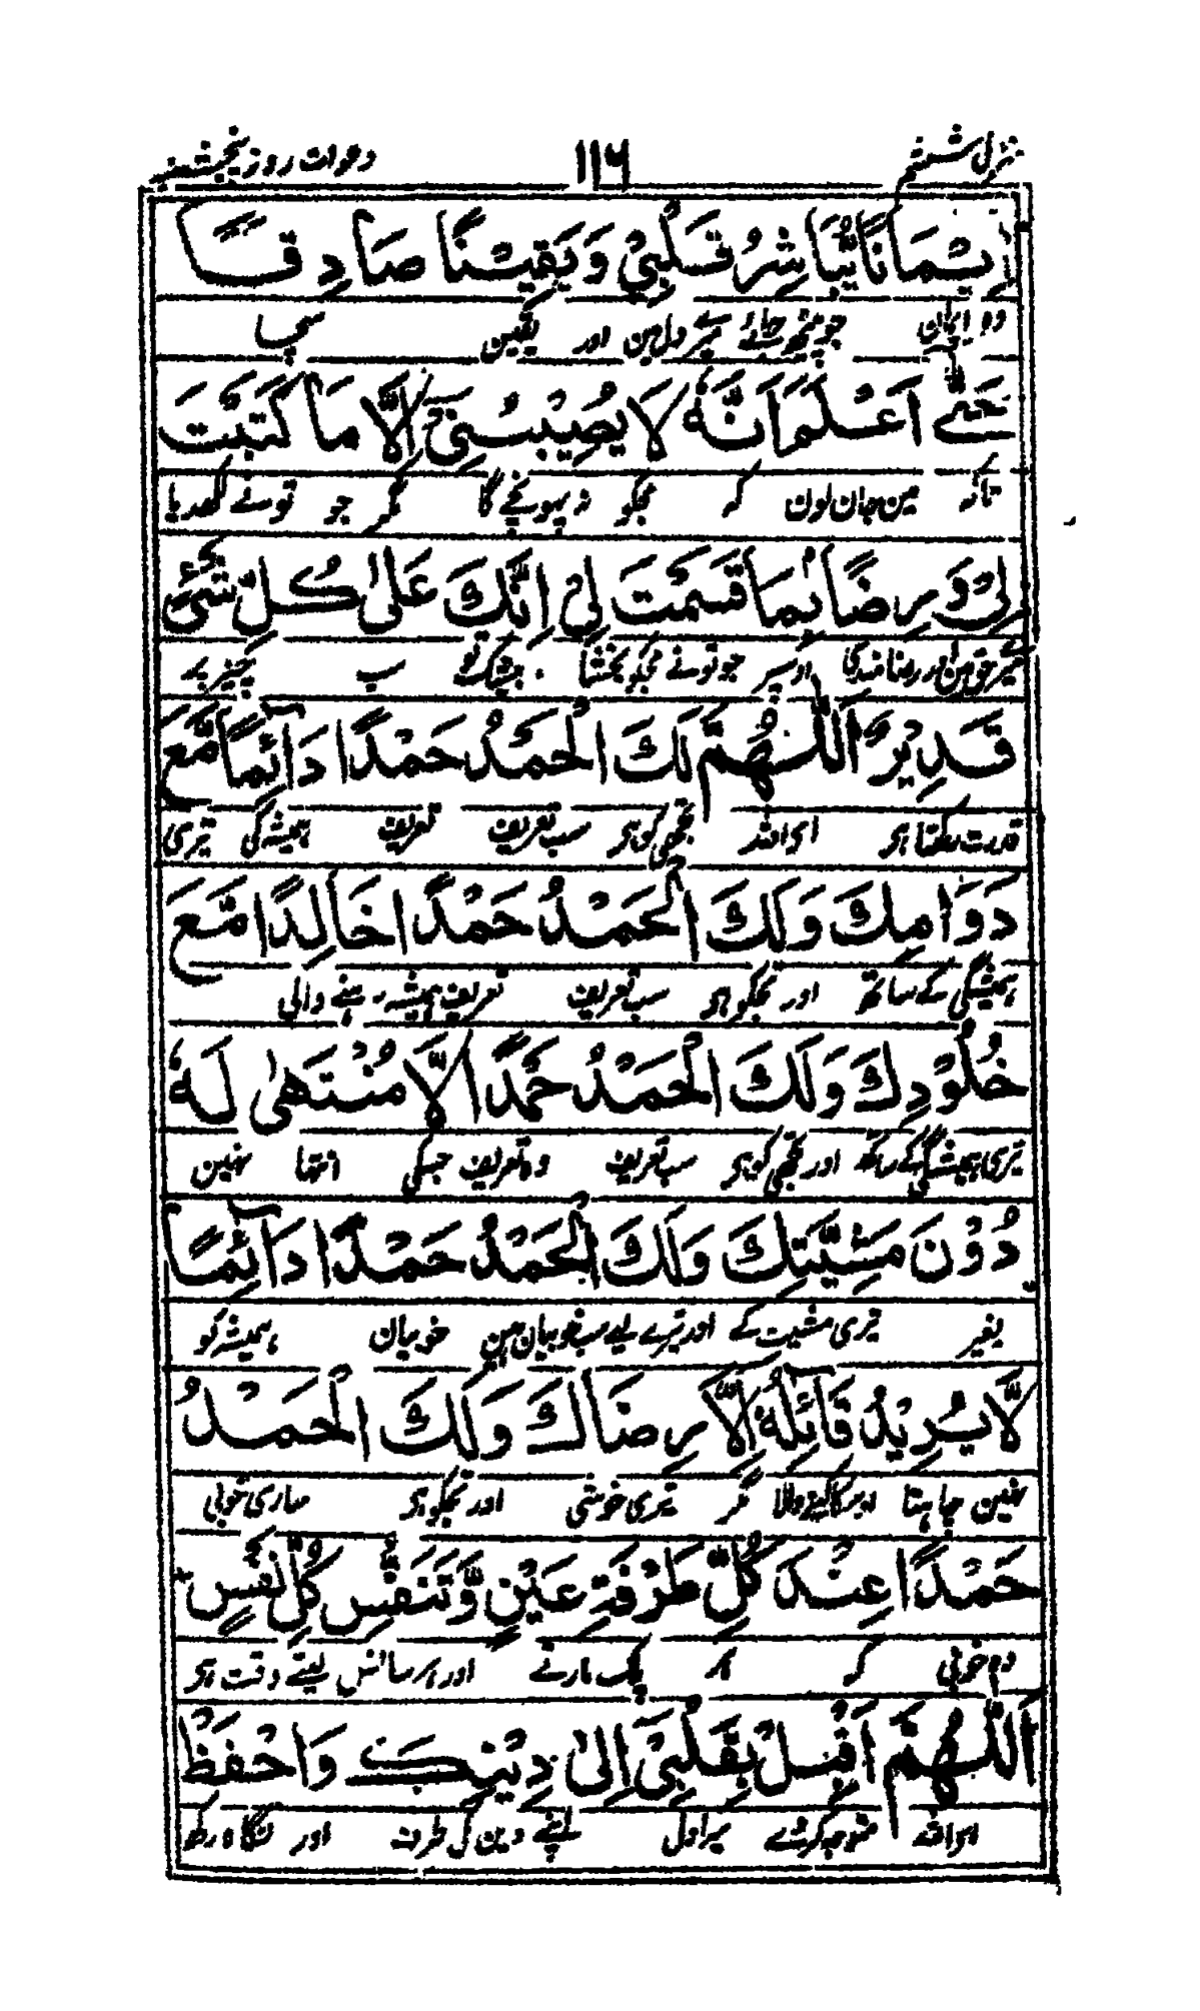 منزل ششم ۱۱۶ دعوات روز پنجشنبہ
اِيْمَانًا يُّبَاشِرُ قَلْبِيْ وَيَقِيْنًا صَادِقًا
وہ ایمان جو میرے دل مین اور یقین سچا
حَتّٰى اَعْلَمَ اَنَّهٗ لَا يُصِيْبُنِيْ اِلَّا مَا كَتَبْتَ
تاکہ مین جان لون کہ مجکو نہ پہونچے گا مگر جو تونے لکھدیا
لِيْ وَرِضًا بِمَا قَسَمْتَ لِيْ اِنَّكَ عَلٰى كُلِّ شَيْءٍ
میرے حق مین اور رضامندی اوسپر جو تونے مجکو بخشا بیشک تو سب چیز پر
قَدِيْرٌ اَللّٰهُمَّ لَكَ الْحَمْدُ حَمْدًا دَآئِمًا مَّعَ
قدرت رکھتا ہی ای اللہ تجھی کو ہی سب تعریف تعریف ہمیشہ کی تیری
دَوَامِكَ وَلَكَ الْحَمْدُ حَمْدًا خَالِدًا مَّعَ
ہمیشگی کے ساتھ اور تجکو ہی سب تعریف تعریف ہمیشہ رہنے والی
خُلُوْدِكَ وَلَكَ الْحَمْدُ حَمْدًا لَّا مُنْتَهٰى لَهٗ
تیری ہمیشگی کے ساتھ اور تجھی کو ہی سب تعریف وہ تعریف جسکی انتہا نہین
دُوْنَ مَشِيَّتِكَ وَلَكَ الْحَمْدُ حَمْدًا دَآئِمًا
بغیر تیری مشیت کے اور تیرے لیے سب خوبیان ہین خوبیان ہمیشہ کو
لَّا يُرِيْدُ قَآئِلُهٗ اِلَّا رِضَاكَ وَلَكَ الْحَمْدُ
نہین چاہتا اوسکا کہنے والا مگر تیری خوشی اور تجکو ہی ساری خوبی
حَمْدًا عِنْدَ كُلِّ طَرْفَةِ عَيْنٍ وَّتَنَفُّسِ كُلِّ نَفْسٍ
وہ خوبی کہ ہر پلک مارنے اور ہر سانس لیتے وقت ہی
اَللّٰهُمَّ اَقْبِلْ بِقَلْبِيْ اِلٰى دِيْنِكَ وَاحْفَظْ
ای اللہ متوجہ کردے میرا دل اپنے دین کی طرف اور نگاہ رکھ